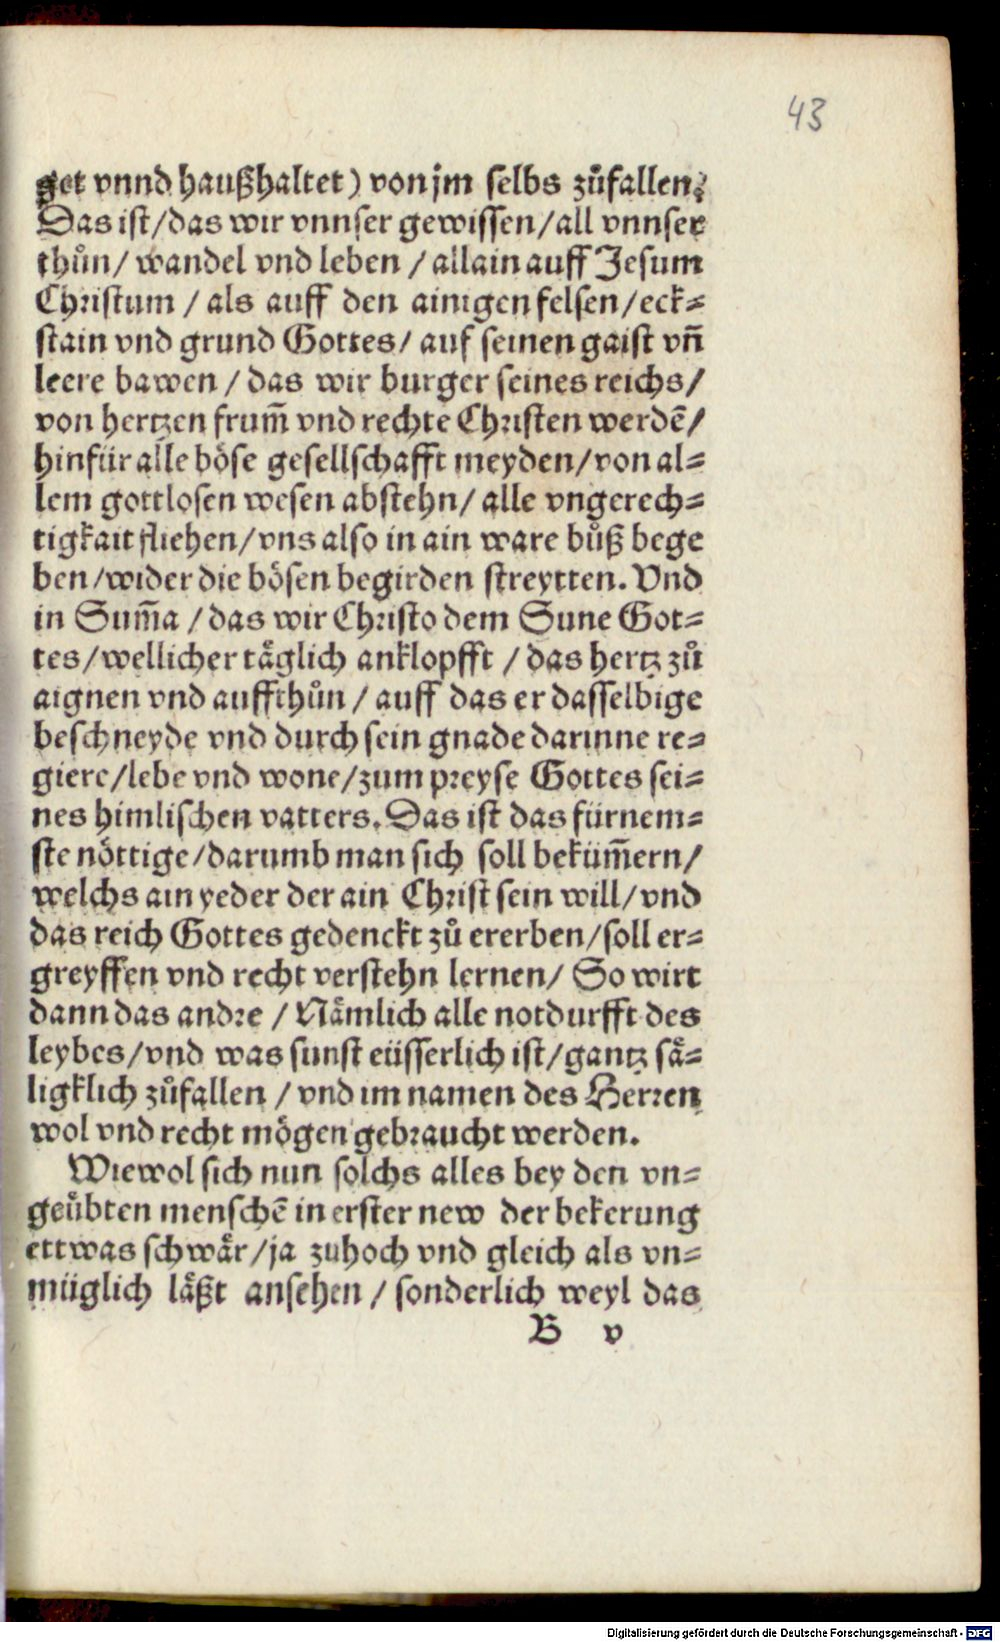 43
get vnnd haußhaltet) von jm selbs zůfallen.
Das ist/das wir vnnser gewissen/all vnnser
thůn/ wandel vnd leben / allain auff Jesum
Christum / als auff den ainigen felsen/eck⸗
stain vnd grund Gottes/ auf seinen gaist vn̄
leere bawen / das wir burger seines reichs/
von hertzen frum̄ vnd rechte Christen werdē/
hinfür alle böse gesellschafft meyden/von al⸗
lem gottlosen wesen abstehn/ alle vngerech⸗
tigkait fliehen/vns also in ain ware bůß bege
ben/wider die bösen begirden streytten. Vnd
in Sum̄a / das wir Christo dem Sune Got⸗
tes/wellicher täglich anklopfft / das hertz zů
aignen vnd auffthůn / auff das er dasselbige
beschneyde vnd durch sein gnade darinne re⸗
giere/lebe vnd wone/zum preyse Gottes sei⸗
nes himlischen vatters. Das ist das fürnem⸗
ste nöttige/darumb man sich soll beküm̄ern/
welchs ain yeder der ain Christ sein will/vnd
das reich Gottes gedenckt zů ererben/soll er⸗
greyffen vnd recht verstehn lernen/ So wirt
dann das andre / Nämlich alle notdurfft des
leybes/vnd was sunst eüsserlich ist/gantz sä⸗
ligklich zůfallen / vnd im namen des Herren
wol vnd recht mögen gebraucht werden.
Wiewol sich nun solchs alles bey den vn⸗
geübten menschē in erster new der bekerung
ettwas schwär/ja zuhoch vnd gleich als vn⸗
müglich läßt ansehen / sonderlich weyl das
B v
Digitalisierung gefördert durch die Deutsche Forschungsgemeinschaft - DFG